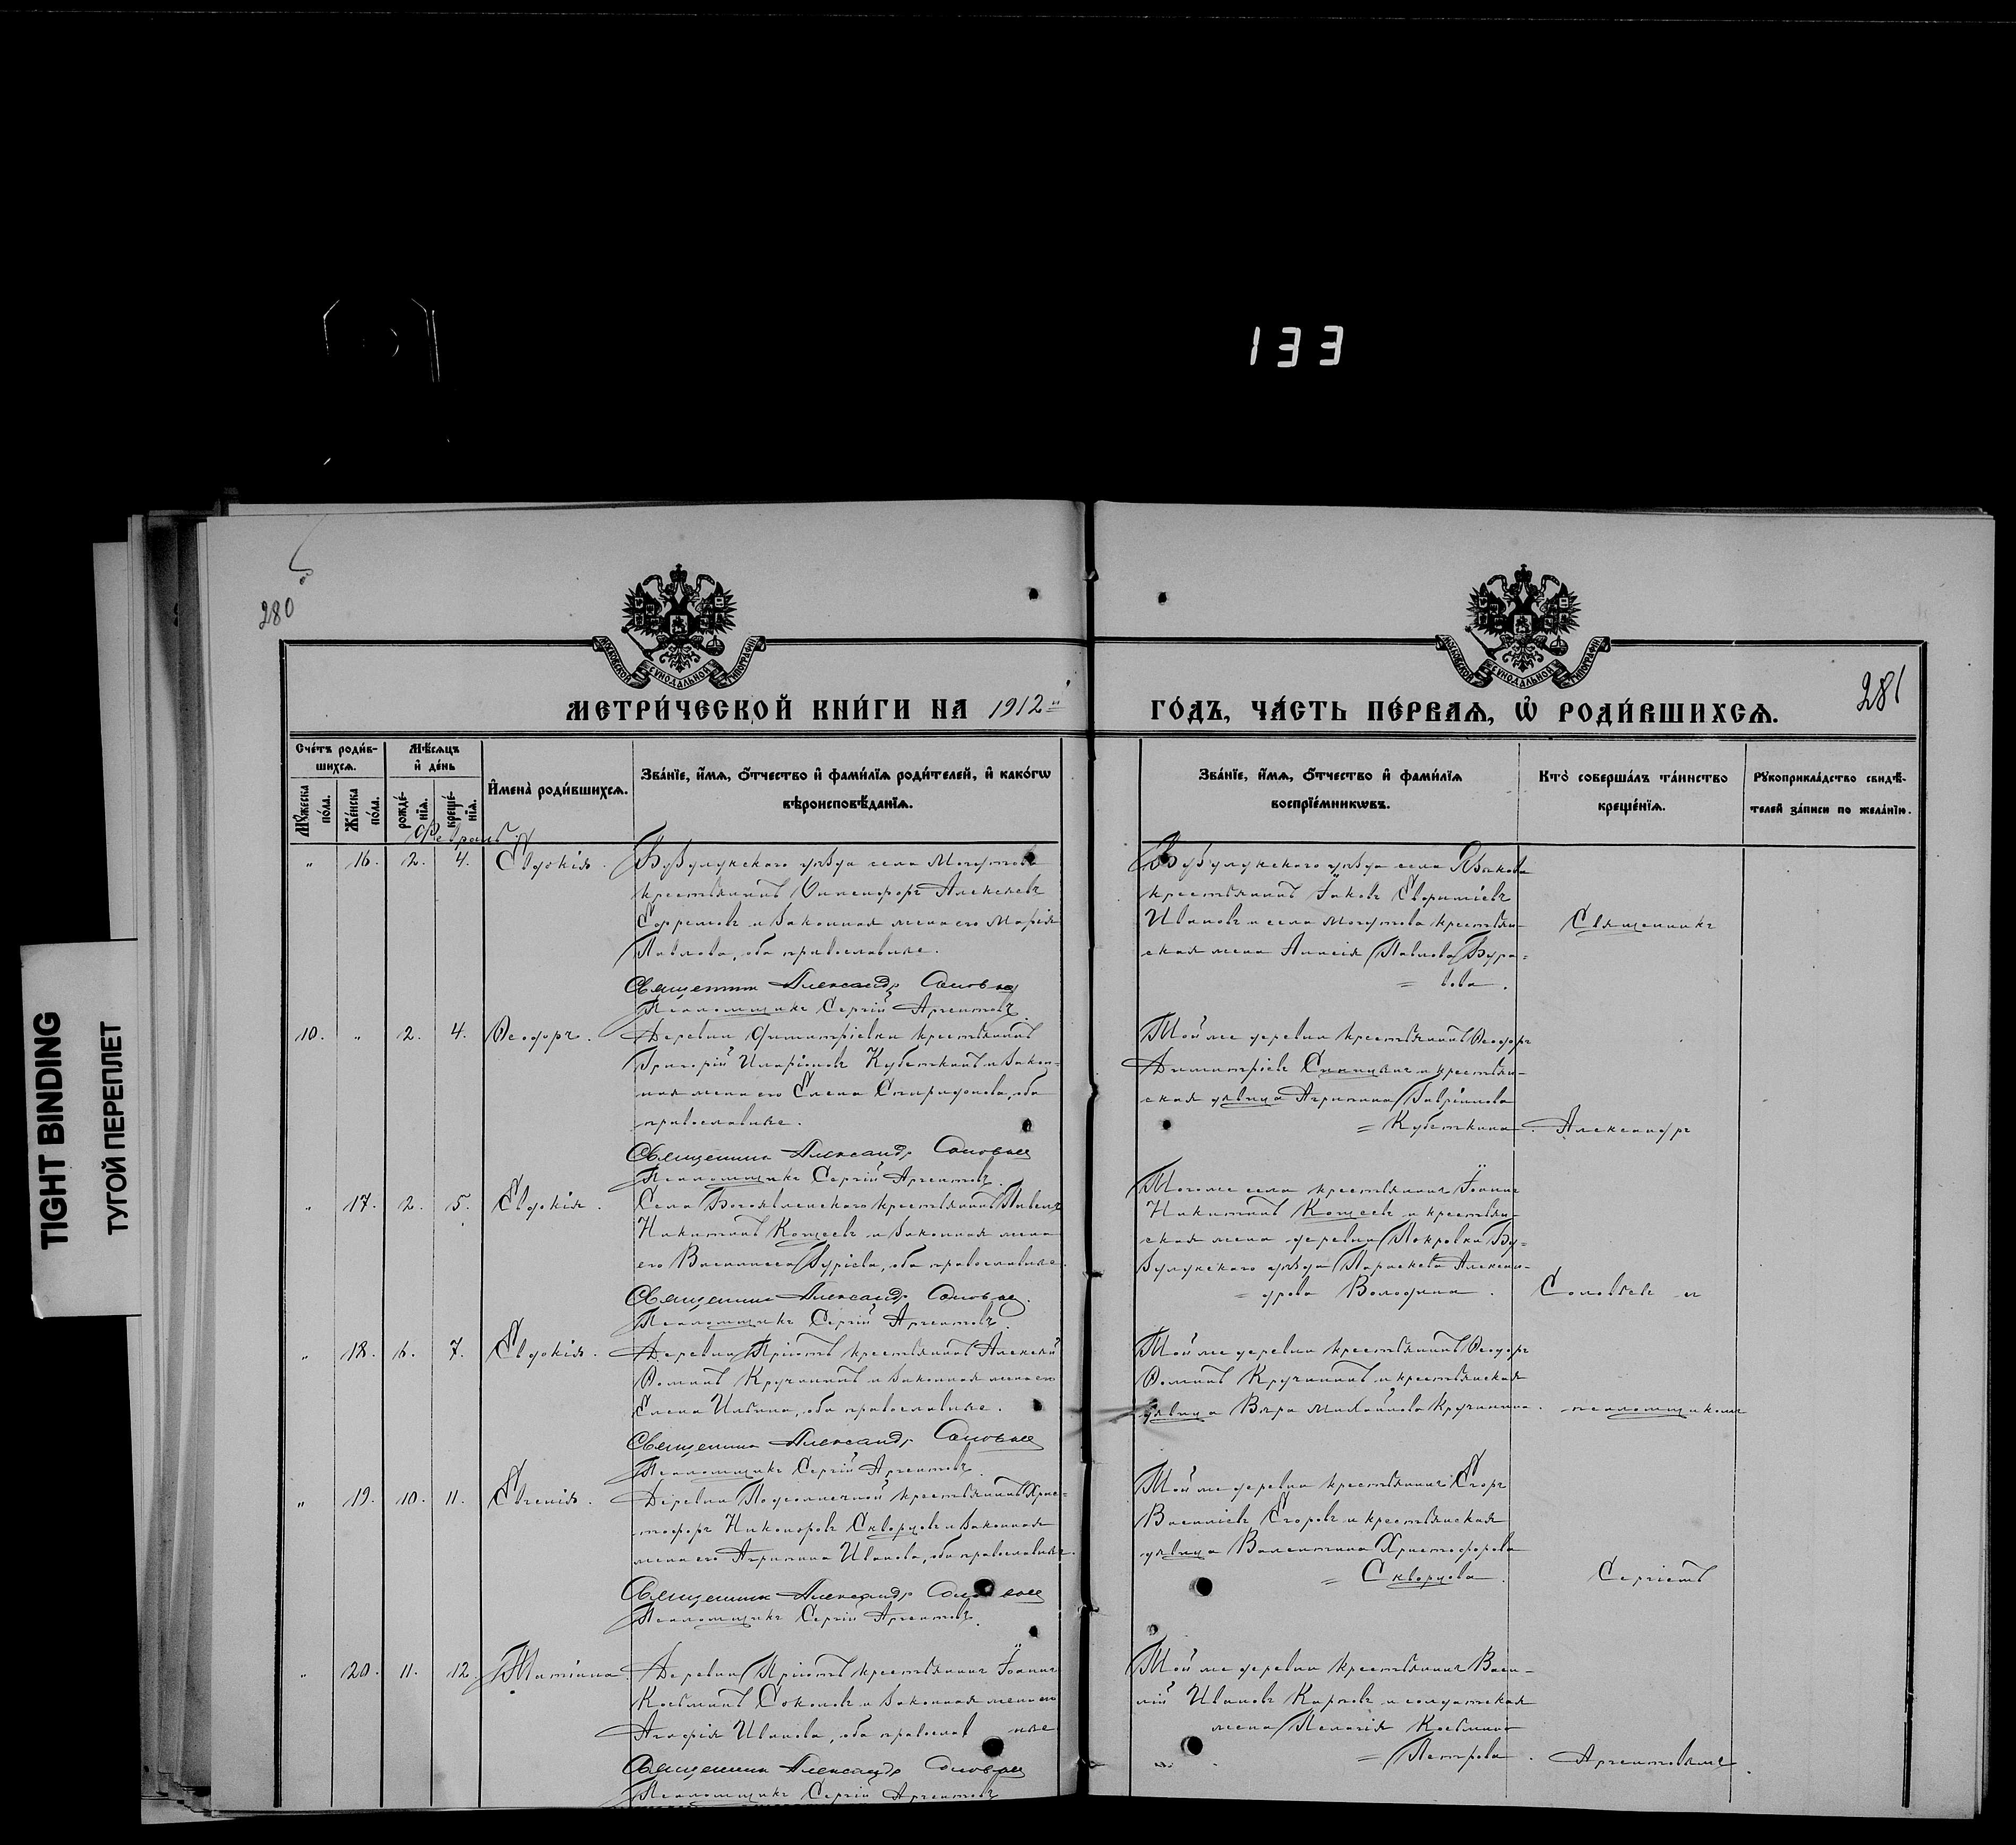 133
TIGHT BINDING
ТУГОЙ ПЕРЕПЛЕТ
280
281
МОСКОВСКОЙ СѴНОДАЛЬНОЙ ТИПОГРАФІИ
МОСКОВСКОЙ СѴНОДАЛЬНОЙ ТИПОГРАФІИ
МЕТРИ́ЧЕСКОЙ КНИ́ГИ НА 1912 й ГО́ДЪ, ЧА́СТЬ ПЕ́РВАѦ, Ѡ҆ РОДИ́ВШИХСѦ.
Сче́тъ роди́в-
шихсѧ.
Мꙋ́жеска по́ла.
Же́нска по́ла.
Мѣ́сѧцъ
и҆ де́нь
рожде́-
нїѧ.
креще́-
нїѧ.
И҆мена̀ роди́вшихсѧ.
Зва́нїе, и҆́мѧ, ѻ҆́тчество и҆ фами́лїѧ роди́телей, и҆ како́гѡ
вѣроисповѣ́данїѧ.
Зва́нїе, и҆́мѧ, ѻ҆́тчество и҆ фами́лїѧ
воспрїе́мникѡвъ.
Кто̀ соверша́лъ та́инство
креще́нїѧ.
Рꙋкоприкла́дство свидѣ́-
телей за́писи по жела́нїю.
Февраль.
" 16. 2. 4. Евдокія.
Бузулукскаго уѣзда села Могутова
крестьянинъ Никифоръ Алексѣевъ
Ефремовъ и законная жена его Марія
Павлова, оба православные.
Священникъ Александръ Соловьевъ
Псаломщикъ Сергій Аргентовъ.
Бузулукскаго уѣзда села Языкова
крестьянинъ Іаковъ
Ивановъ и села Могутова крестьян-
ская жена Анисія Павлова Бура-
= вова.
10. " 2. 4. Ѳеодоръ.
Деревни Димитріевки крестьянинъ
Григорій Иларіоновъ Кубышкинъ и закон-
ная жена его Елена Спиридонова, оба
православные.
Священникъ Александръ Соловьевъ
Псаломщикъ Сергій Аргентовъ.
Той же деревни крестьянинъ Ѳеодоръ
Димитріевъ и крестьян-
ская дѣвица Агрипина Гавріилова
= Кубышкина.
" 17. 2. 5. Евдокія.
Села Богоявленскаго крестьянинъ Павелъ
Никитинъ Кощеевъ и законная жена
его Василисса Гуріева, оба православные.
Священникъ Александръ Соловьевъ.
Псаломщикъ Сергій Аргентовъ.
Того же села крестьянинъ Іоаннъ
Никитинъ Кощеевъ и крестьян-
ская жена деревни Покровки Бу-
зулукскаго уѣзда Параскева Алексан-
= дрова Володина.
" 18. 6. 7. Евдокія.
Деревни Пріютъ крестьянинъ Алексѣй
Ѳоминъ Кручининъ и законная жена его
Елена Ильина, оба православные.
Священникъ Александръ Соловьевъ
Псаломщикъ Сергій Аргентовъ.
Той же деревни крестьянинъ Ѳеодоръ
Ѳоминъ Кручининъ и крестьянская
дѣвица Вѣра Михайлова Кручинина.
" 19. 10. 11. Евгенія.
Деревни Подсолнечной крестьянинъ Хрис-
тофоръ Никаноровъ Скворцовъ и законная
жена его Агрипина Иванова, оба православные.
Священникъ Александръ Соловьевъ
Псаломщикъ Сергій Аргентовъ.
Той же деревни крестьянинъ Егоръ
Василіевъ Егоровъ и крестьянская
дѣвица Валентина Христофорова
= Скворцова.
" 20. 11. 12. Татіана.
Деревни Пріютъ крестьянинъ Іоаннъ
Косьминъ Соколовъ и законная жена его
Агафія Иванова, оба православные
Священникъ Александръ Соловьевъ
Псаломщикъ Сергій Аргентовъ
Той же деревни крестьянинъ Васи-
лій Ивановъ Карповъ и солдатская
жена Пелагія Косьмина
= Петрова.
Священникъ
Александръ
Соловьевъ и
псаломщикомъ
Сергіемъ
Аргентовымъ.